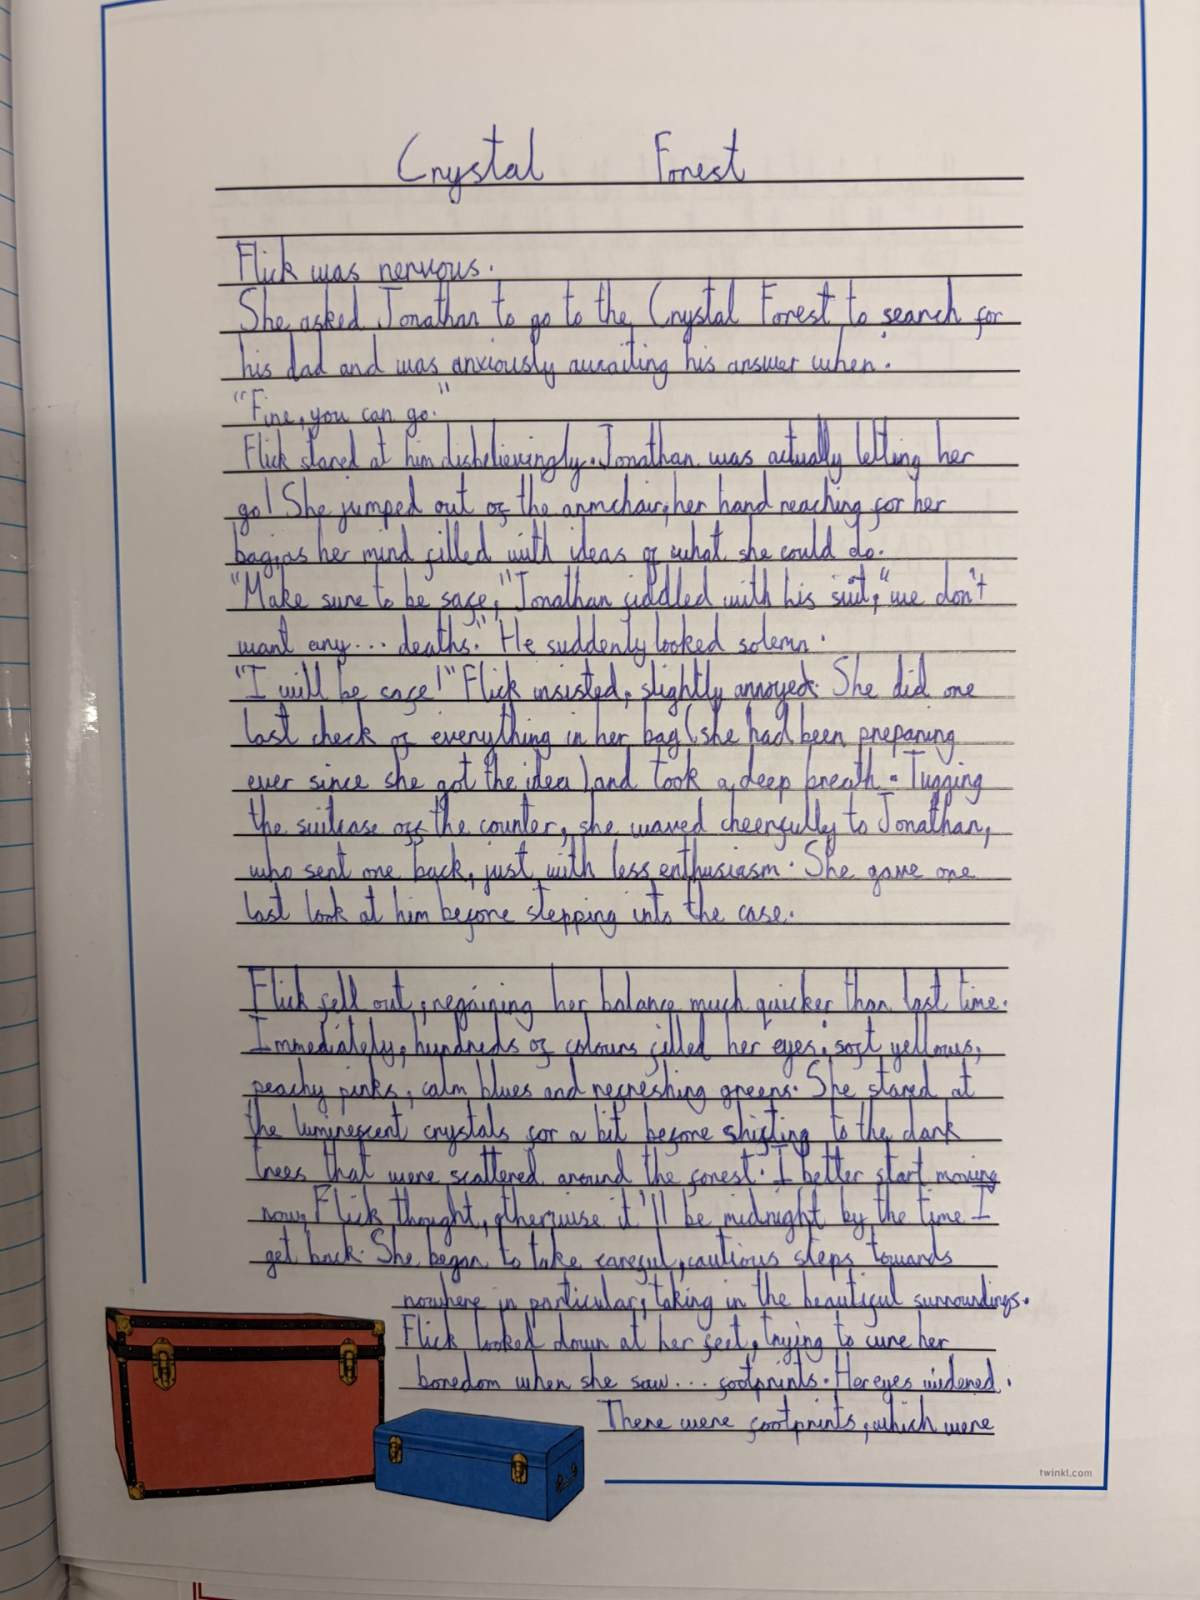 Crystal Forest
Flick was nervous.
She asked Jonathan to go to the Crystal Forest to search for
his dad and was anxiously awaiting his answer when.
"Fine, you can go."
Flick stared at him disbelievingly. Jonathan was actually letting her
go! She jumped out of the armchair, her hand reaching for her
bag, as her mind filled with ideas of what she could do.
"Make sure to be safe," Jonathan fiddled with his suit, "we don't
want any... deaths." He suddenly looked solemn.
"I will be safe!" Flick insisted, slightly annoyed. She did one
last check of everything in her bag (she had been preparing
ever since she got the idea) and took a deep breath. Tugging
the suitcase off the counter, she waved cheerfully to Jonathan,
who sent one back, just with less enthusiasm. She gave one
last look at him before stepping into the case.
Flick fell out, regaining her balance much quicker than last time.
Immediately, hundreds of colours filled her eyes; soft yellows,
peachy pinks, calm blues and refreshing greens. She stared at
the luminescent crystals for a bit before shifting to the dark
trees that were scattered around the forest. I better start moving
now, Flick thought, otherwise it'll be midnight by the time I
get back. She began to take careful, cautious steps towards
nowhere in particular, taking in the beautiful surroundings.
Flick looked down at her feet, trying to cure her
boredom when she saw... footprints. Her eyes widened.
There were footprints, which were
twinkl.com